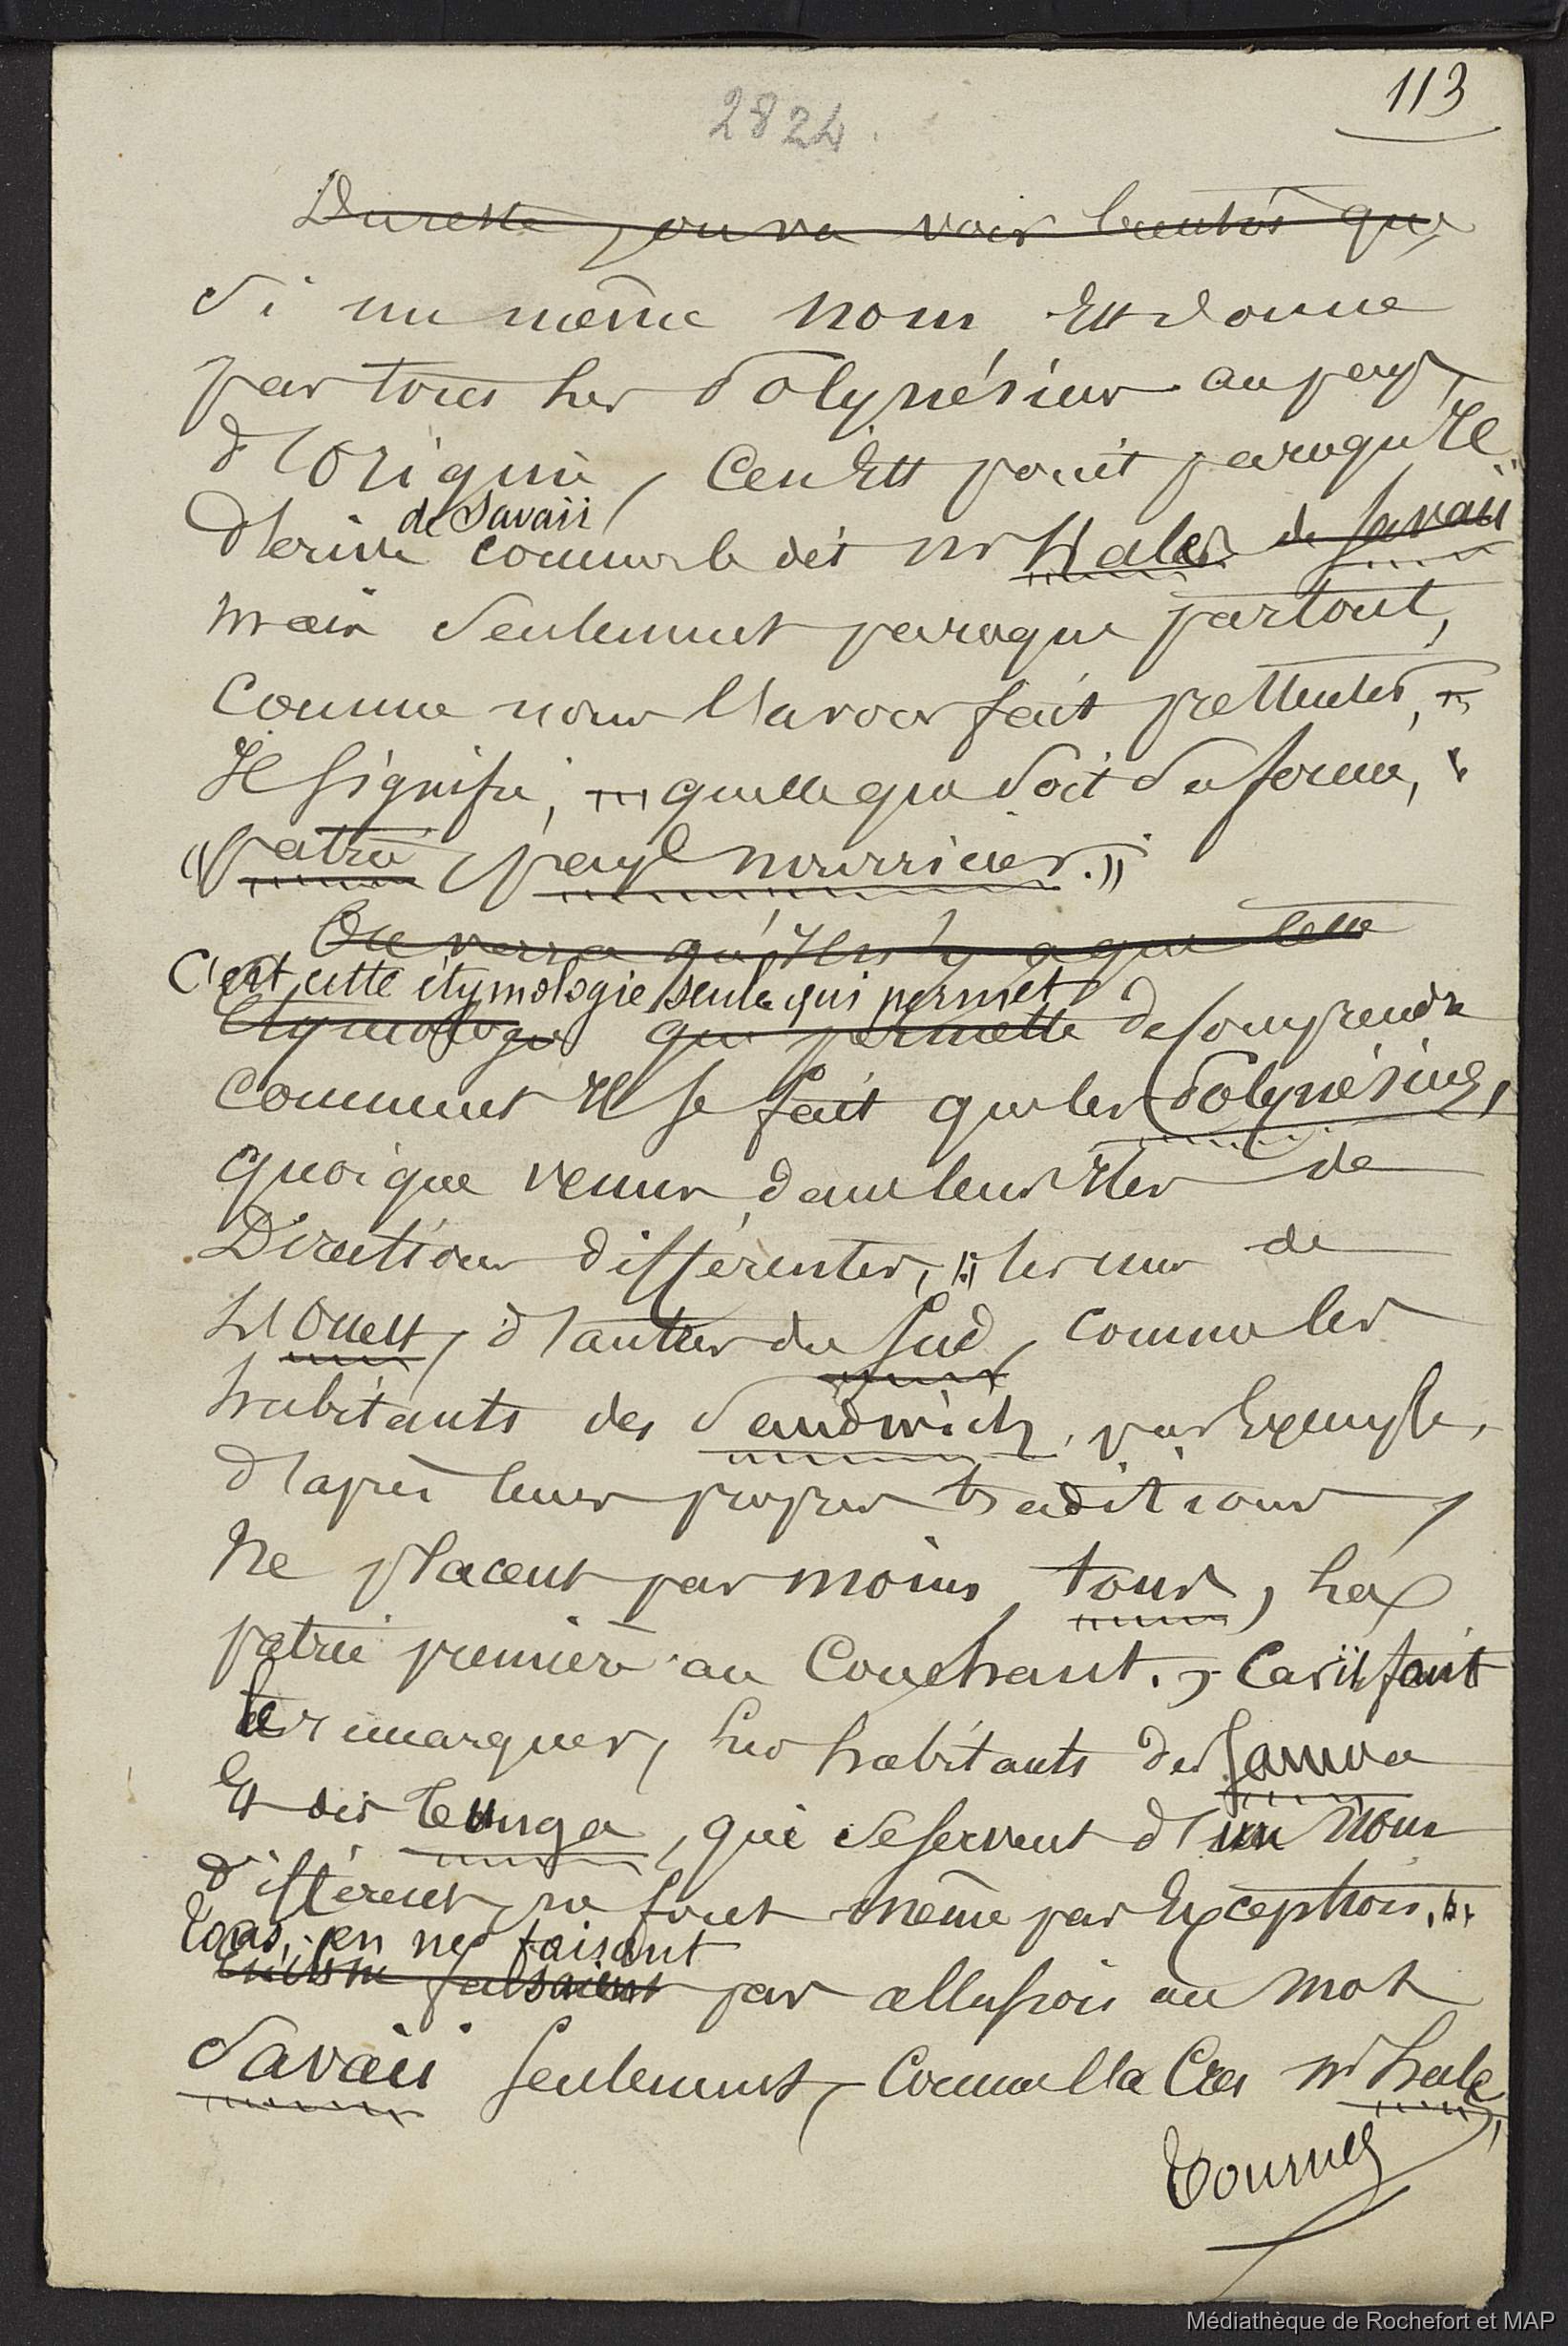 113
2824.
Du reste, on va voir bientôt que
Si un même nom est donné
par tous les Polynésiens au pays
d'origine, ce n'est point parcequ'il
de Savaii
dérive comme le dit Mr Hale, de Savaii
mais seulement parceque partout,
comme nous l'avons fait pressentir,
Il signifie, quelle que soit sa forme,
"patrie, pays nourricier."
On verra qu'il n'y a que cette
C'est cette étymologie seule qui permet
Etymologie qui permette de comprendre
comment Il se fait que les Polynésiens,
quoique venus dans leurs Iles de
Directions différentes, les uns de
L'Ouest, d'autres du Sud, comme les
habitants des Sandwich, par Exemple,
d'après leurs propres traditions,
Ne placent pas moins, tous, la
patrie première au Couchant. Car il faut
le remarquer, les habitants des Samoa
Et des Tunga, qui se servent d'un nom
différent, ne font même pas Exception,
en ne faisant
faisaient pas allusion au mot
Savaii seulement, comme l'a Cru Mr Hale,
Tournez
Médiathèque de Rochefort et MAP